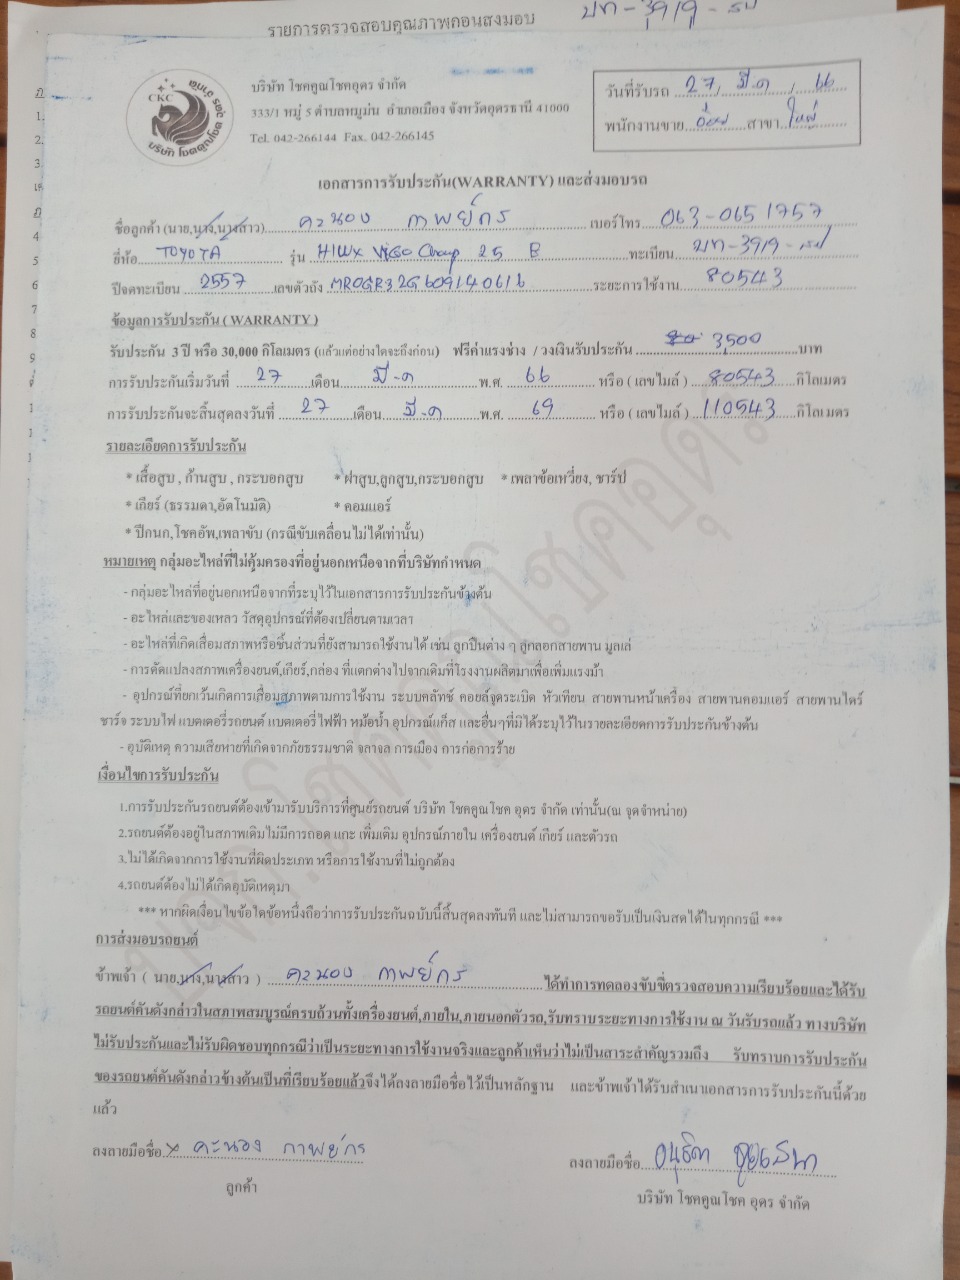 รายการตรวจสอบคุณภาพก่อนส่งมอบ บท-3919-
CKC
บริษัท โชคคูณโชคอุดร จำกัด
333/1 หมู่ 5 ตำบลหมูม่น อำเภอเมือง จังหวัดอุดรธานี 41000
Tel. 042-266144 Fax. 042-266145
วันที่รับรถ 27 / มี.ค / 66
พนักงานขาย สาขา ใหญ่
เอกสารการรับประกัน(WARRANTY) และส่งมอบรถ
ชื่อลูกค้า (นาย,นาง,นางสาว) คะนอง ภาพย์กร เบอร์โทร 063-0651757
ยี่ห้อ TOYOTA รุ่น HILUX VIGO Champ 2.5 E ทะเบียน บท-3919-
ปีจดทะเบียน 2557 เลขตัวถัง MROGR32G609140616 ระยะการใช้งาน 80543
ข้อมูลการรับประกัน ( WARRANTY )
รับประกัน 3 ปี หรือ 30,000 กิโลเมตร (แล้วแต่อย่างใดจะถึงก่อน) ฟรีค่าแรงช่าง / วงเงินรับประกัน 3,500 บาท
การรับประกันเริ่มวันที่ 27 เดือน มี.ค พ.ศ. 66 หรือ ( เลขไมล์ ) 80543 กิโลเมตร
การรับประกันจะสิ้นสุดลงวันที่ 27 เดือน มี.ค พ.ศ. 69 หรือ ( เลขไมล์ ) 110543 กิโลเมตร
รายละเอียดการรับประกัน
* เสื้อสูบ , ก้านสูบ , กระบอกสูบ * ฝาสูบ,ลูกสูบ,กระบอกสูบ * เพลาข้อเหวี่ยง, ชาร์ป
* เกียร์ (ธรรมดา,อัตโนมัติ) * คอมแอร์
* ปีกนก,โชคอัพ,เพลาขับ (กรณีขับเคลื่อนไม่ได้เท่านั้น)
หมายเหตุ กลุ่มอะไหล่ที่ไม่คุ้มครองที่อยู่นอกเหนือจากที่บริษัทกำหนด
- กลุ่มอะไหล่ที่อยู่นอกเหนือจากที่ระบุไว้ในเอกสารการรับประกันข้างต้น
- อะไหล่และของเหลว วัสดุอุปกรณ์ที่ต้องเปลี่ยนตามเวลา
- อะไหล่ที่เกิดเสื่อมสภาพหรือชิ้นส่วนที่ยังสามารถใช้งานได้ เช่น ลูกปืนต่าง ๆ ลูกลอกสายพาน มูลเล่
- การดัดแปลงสภาพเครื่องยนต์,เกียร์,กล่อง ที่แตกต่างไปจากเดิมที่โรงงานผลิตมาเพื่อเพิ่มแรงม้า
- อุปกรณ์ที่ยกเว้นเกิดการเสื่อมสภาพตามการใช้งาน ระบบคลัทช์ คอยล์จุดระเบิด หัวเทียน สายพานหน้าเครื่อง สายพานคอมแอร์ สายพานไดร์
ชาร์จ ระบบไฟ แบตเตอรี่รถยนต์ แบตเตอรี่ไฟฟ้า หม้อน้ำ อุปกรณ์แก็ส และอื่นๆที่มิได้ระบุไว้ในรายละเอียดการรับประกันข้างต้น
- อุบัติเหตุ ความเสียหายที่เกิดจากภัยธรรมชาติ จลาจล การเมือง การก่อการร้าย
เงื่อนไขการรับประกัน
1.การรับประกันรถยนต์ต้องเข้ามารับบริการที่ศูนย์รถยนต์ บริษัท โชคคูณโชค อุดร จำกัด เท่านั้น(ณ จุดจำหน่าย)
2.รถยนต์ต้องอยู่ในสภาพเดิมไม่มีการถอด แกะ เพิ่มเติม อุปกรณ์ภายใน เครื่องยนต์ เกียร์ และตัวรถ
3.ไม่ได้เกิดจากการใช้งานที่ผิดประเภท หรือการใช้งานที่ไม่ถูกต้อง
4.รถยนต์ต้องไม่ได้เกิดอุบัติเหตุมา
*** หากผิดเงื่อนไขข้อใดข้อหนึ่งถือว่าการรับประกันฉบับนี้สิ้นสุดลงทันที และไม่สามารถขอรับเป็นเงินสดได้ในทุกกรณี ***
การส่งมอบรถยนต์
ข้าพเจ้า ( นาย,นาง,นางสาว ) คะนอง ภาพย์กร ได้ทำการทดลองขับขี่ตรวจสอบความเรียบร้อยและได้รับ
รถยนต์คันดังกล่าวในสภาพสมบูรณ์ครบถ้วนทั้งเครื่องยนต์,ภายใน,ภายนอกตัวรถ,รับทราบระยะทางการใช้งาน ณ วันรับรถแล้ว ทางบริษัท
ไม่รับประกันและไม่รับผิดชอบทุกกรณีว่าเป็นระยะทางการใช้งานจริงและลูกค้าเห็นว่าไม่เป็นสาระสำคัญรวมถึง รับทราบการรับประกัน
ของรถยนต์คันดังกล่าวข้างต้นเป็นที่เรียบร้อยแล้วจึงได้ลงลายมือชื่อไว้เป็นหลักฐาน และข้าพเจ้าได้รับสำเนาเอกสารการรับประกันนี้ด้วย
แล้ว
ลงลายมือชื่อ x คะนอง ภาพย์กร
ลงลายมือชื่อ
ลูกค้า
บริษัท โชคคูณโชค อุดร จำกัด